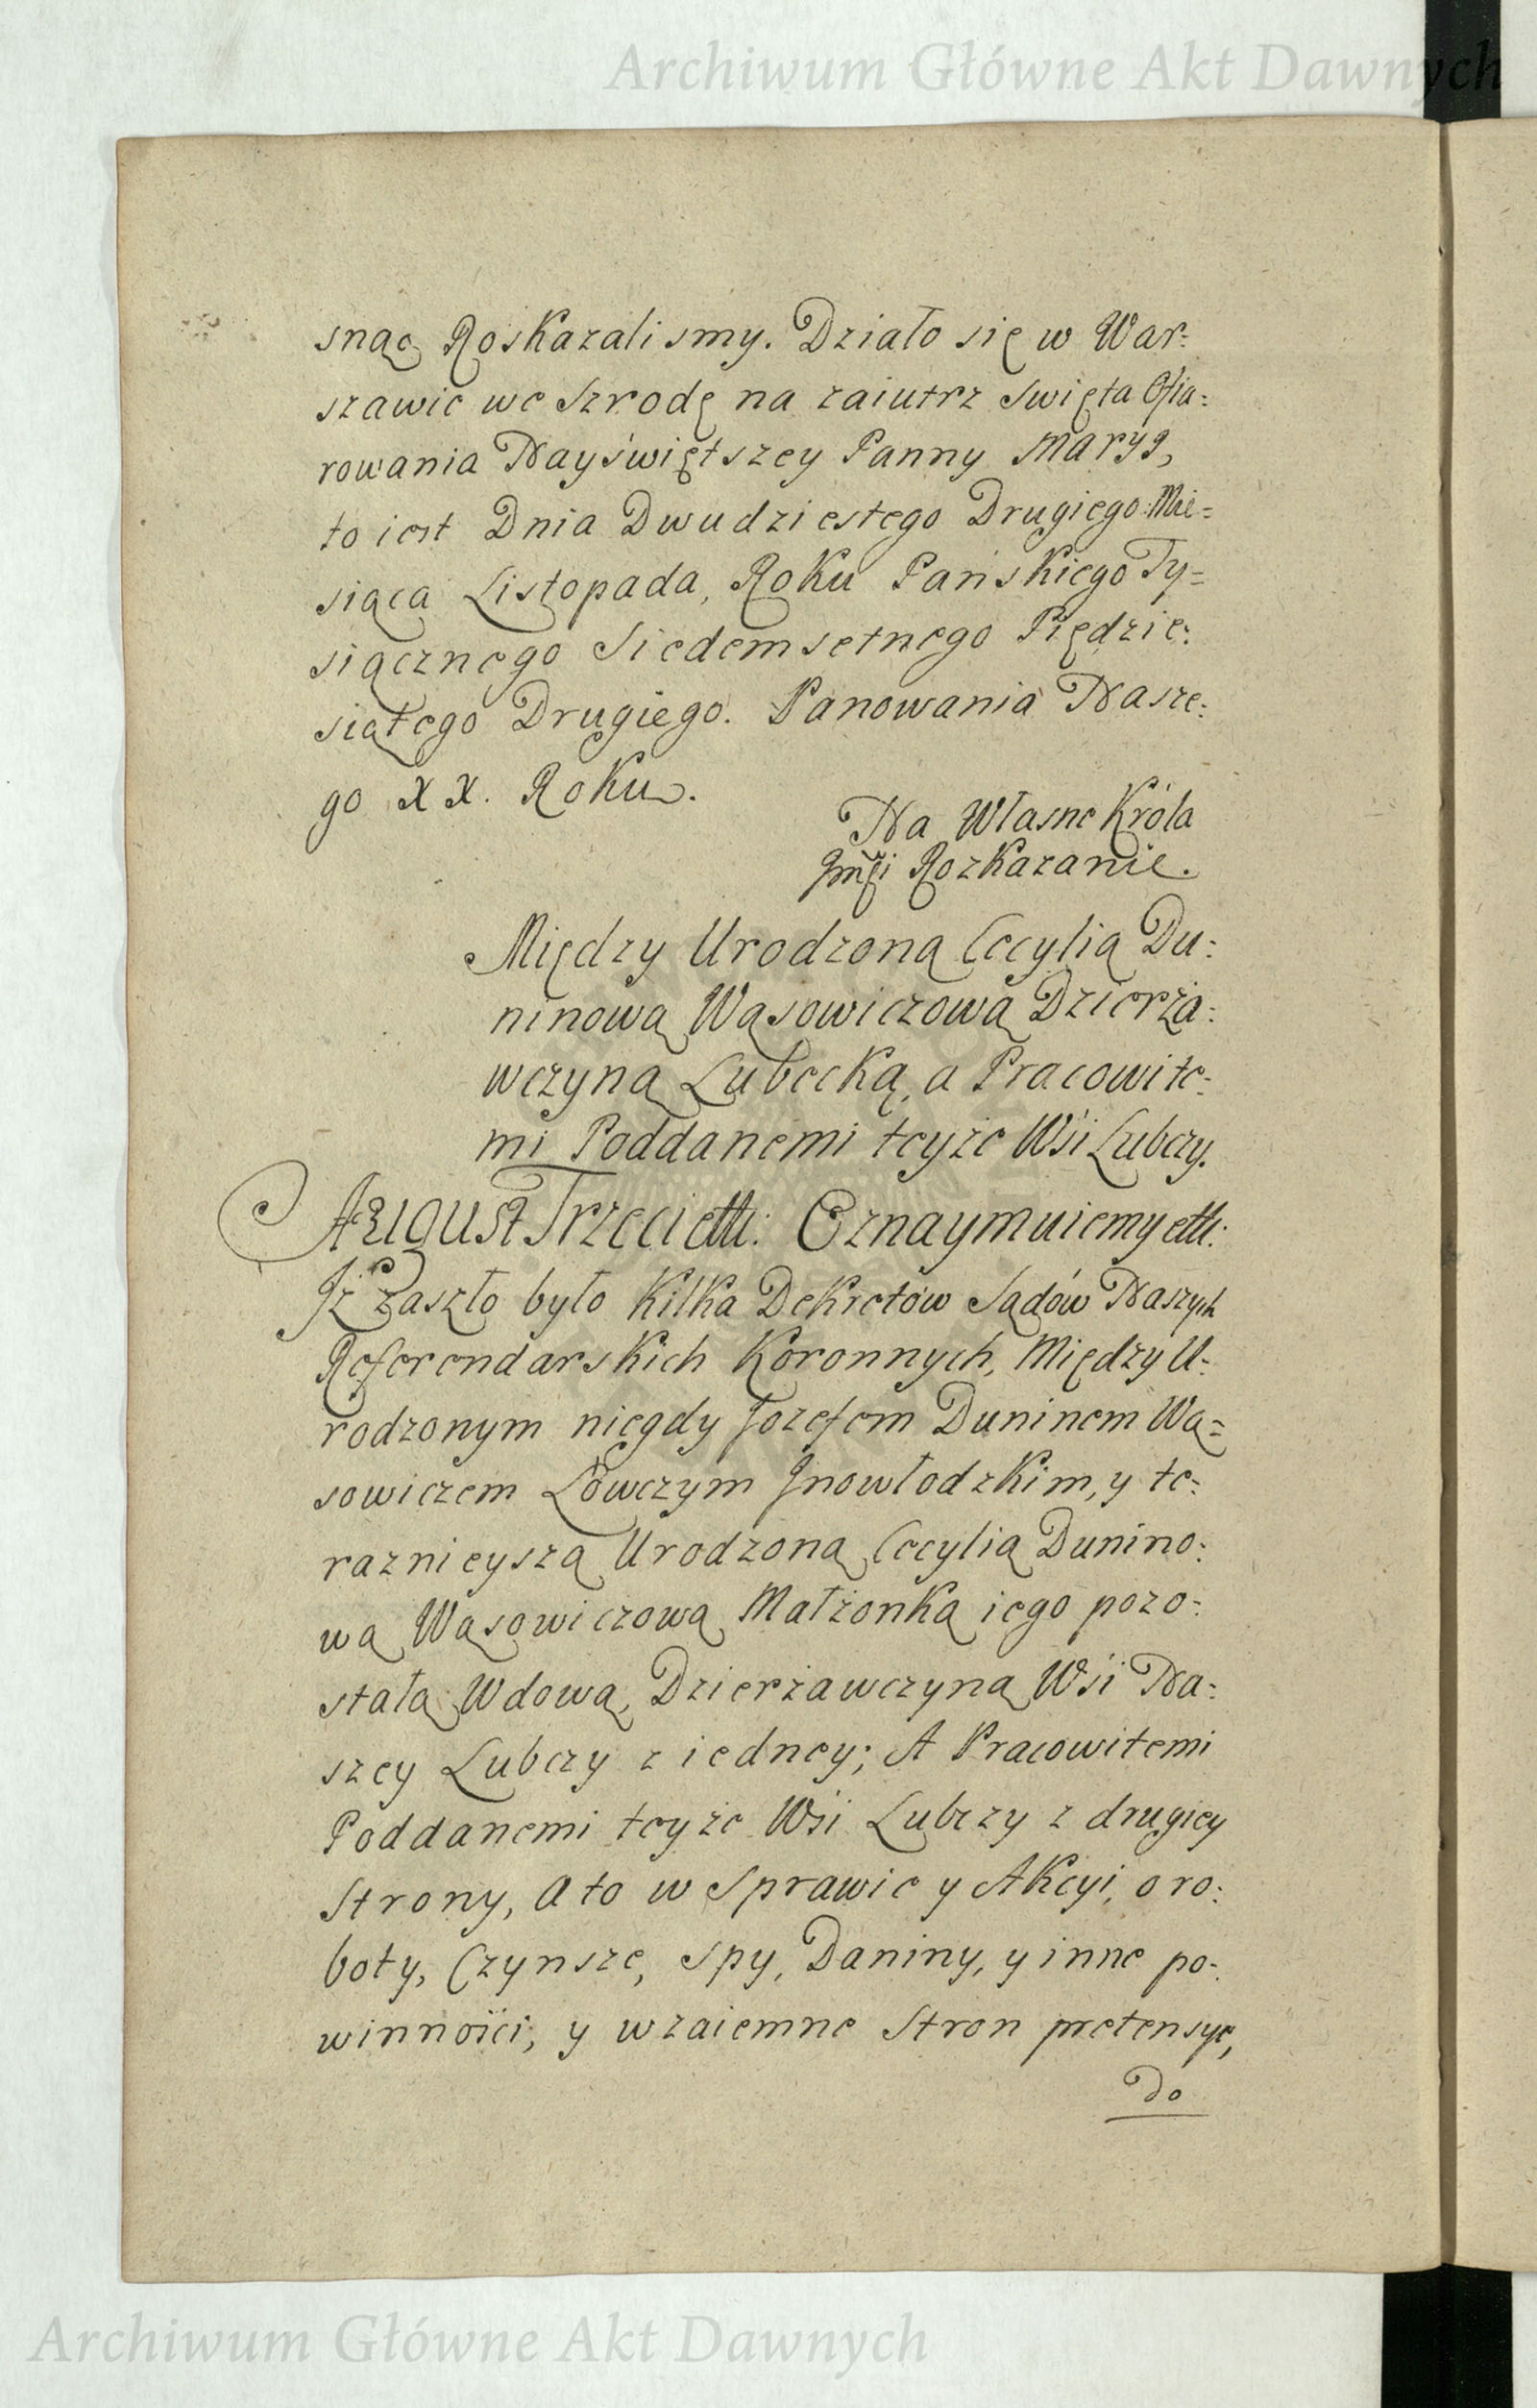 Archiwum Główne Akt Dawnych
snąc Roskazalismy. Działo się w War=
szawie we Szrodę na zaiutrz Swięta Ofia=
rowania Nayświętszey Panny Maryi,
to iest Dnia Dwudziestego Drugiego Mie=
siąca Listopada, Roku Pańskiego Ty=
siącznego Siedemsetnego Piędzie=
siątego Drugiego. Panowania Nasze=
go XX. Roku.
Na Własne Króla
Jmći Rozkazanie.
Między Urodzoną Cecylią Du=
ninową Wąsowiczową Dzierża=
wczyną Lubecką, a Pracowite=
mi Poddanemi teyże Wśi Lubczy.
August Trzeci etc: Oznaymuiemy etc:
Iż Zaszło było Kilka Dekretów Sądów Naszych
Referendarskich Koronnych, Między U=
rodzonym niegdy Jozefem Duninem Wą=
sowiczem Łowczym Jnowłodzkim, y te=
raznieyszą Urodzoną Cecylią Dunino=
wą Wąsowiczową Małżonką iego pozo=
stałą Wdową, Dzierżawczyną Wśi Na=
szey Lubczy z iedney; A Pracowitemi
Poddanemi teyże Wśi Lubczy z drugiey
Strony, A to w Sprawie y Akcyi, o ro=
boty, Czynsze, Spy, Daniny, y inne po=
winnośći; y wzaiemne Stron pretensye,
Do
Archiwum Główne Akt Dawnych